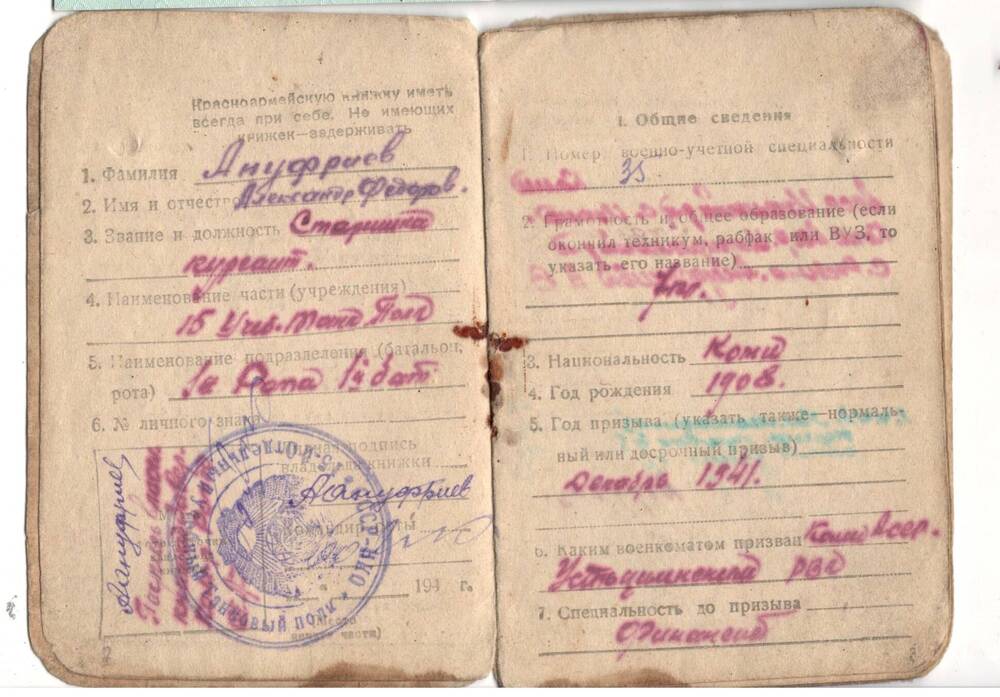 Красноармейскую книжку иметь
всегда при себе. Не имеющих
книжек—задерживать
1. Фамилия Ануфриев
2. Имя и отчество Александр Фёдоров.
3. Звание и должность Старшина
курсант.
4. Наименование части (учреждения)
15 Учеб. Танк Полк
5. Наименование подразделения (батальон,
рота) 1я Рота 1й бат
6. № личного знака
Личная подпись
владельца книжки
Ануфриев
Командир роты
194 г.
Место
печати части)
Ануфриев
1. Общие сведения
1. Номер военно-учетной специальности
35
2. Грамотность и общее образование (если
окончил техникум, рабфак или ВУЗ, то
указать его название)
3. Национальность Коми
4. Год рождения 1908.
5. Год призыва (указать также—нормаль-
ный или досрочный призыв)
декабрь 1941.
6. Каким военкоматом призван Коми АССР.
Устьцилемский РВК
7. Специальность до призыва
Финансист